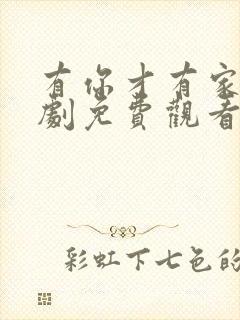 有你才有家
劇免費觀看
彩虹下七色的